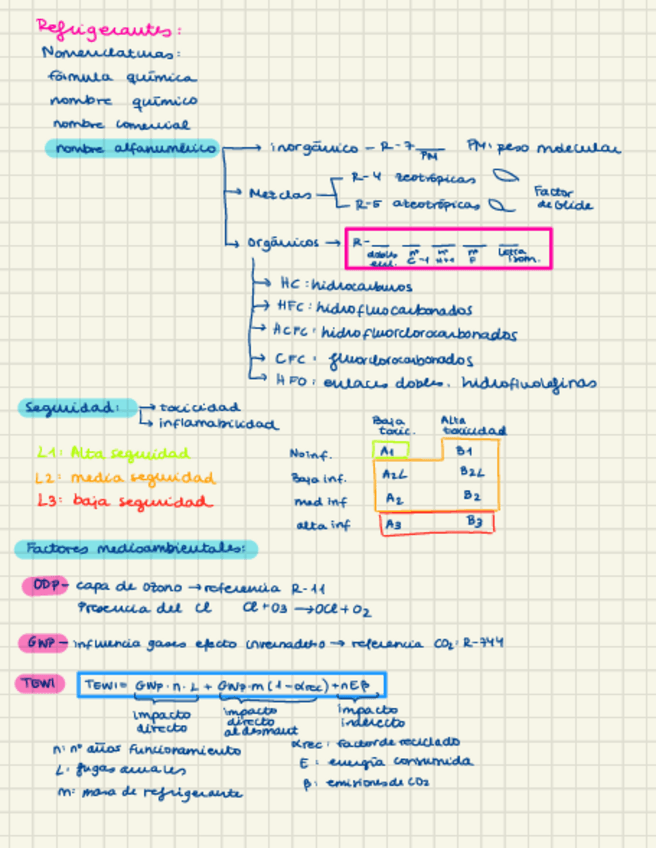 Refrigerantes:
Nomenclaturas:
fórmula química
nombre químico
nombre comercial
nombre alfanumérico → inorgánico - R-7__ PM: peso molecular
PM
→ Mezclas R-4 zeotrópicas
R-5 azeotrópicas
Factor de Glide
→ Orgánicos → R- __ __ __ __ __
dobles enl. nº C-1 nº H+1 nº F Letra isom.
→ HC: hidrocarburos
→ HFC: hidrofluocarbonados
→ HCFC: hidrofluorclorocarbonados
→ CFC: fluorclorocarbonados
→ HFO: enlaces dobles. hidrofluolefinas
Seguridad: → toxicidad
→ inflamabilidad
Baja toxic. Alta toxicidad
L1: Alta seguridad
L2: media seguridad
L3: baja seguridad
No inf. A1 B1
Baja inf. A2L B2L
med inf A2 B2
alta inf A3 B3
Factores medioambientales:
ODP - capa de ozono → referencia R-11
Presencia del Cl Cl + O3 → OCl + O2
GWP - influencia gases efecto invernadero → referencia CO2: R-744
TEWI TEWI = GWP·n·L + GWP·m (1-αrec) + nEβ
impacto directo impacto directo al desmant impacto indirecto
n: nº años funcionamiento
L: fugas anuales
m: masa de refrigerante
αrec: factor de reciclado
E: energía consumida
β: emisiones de CO2